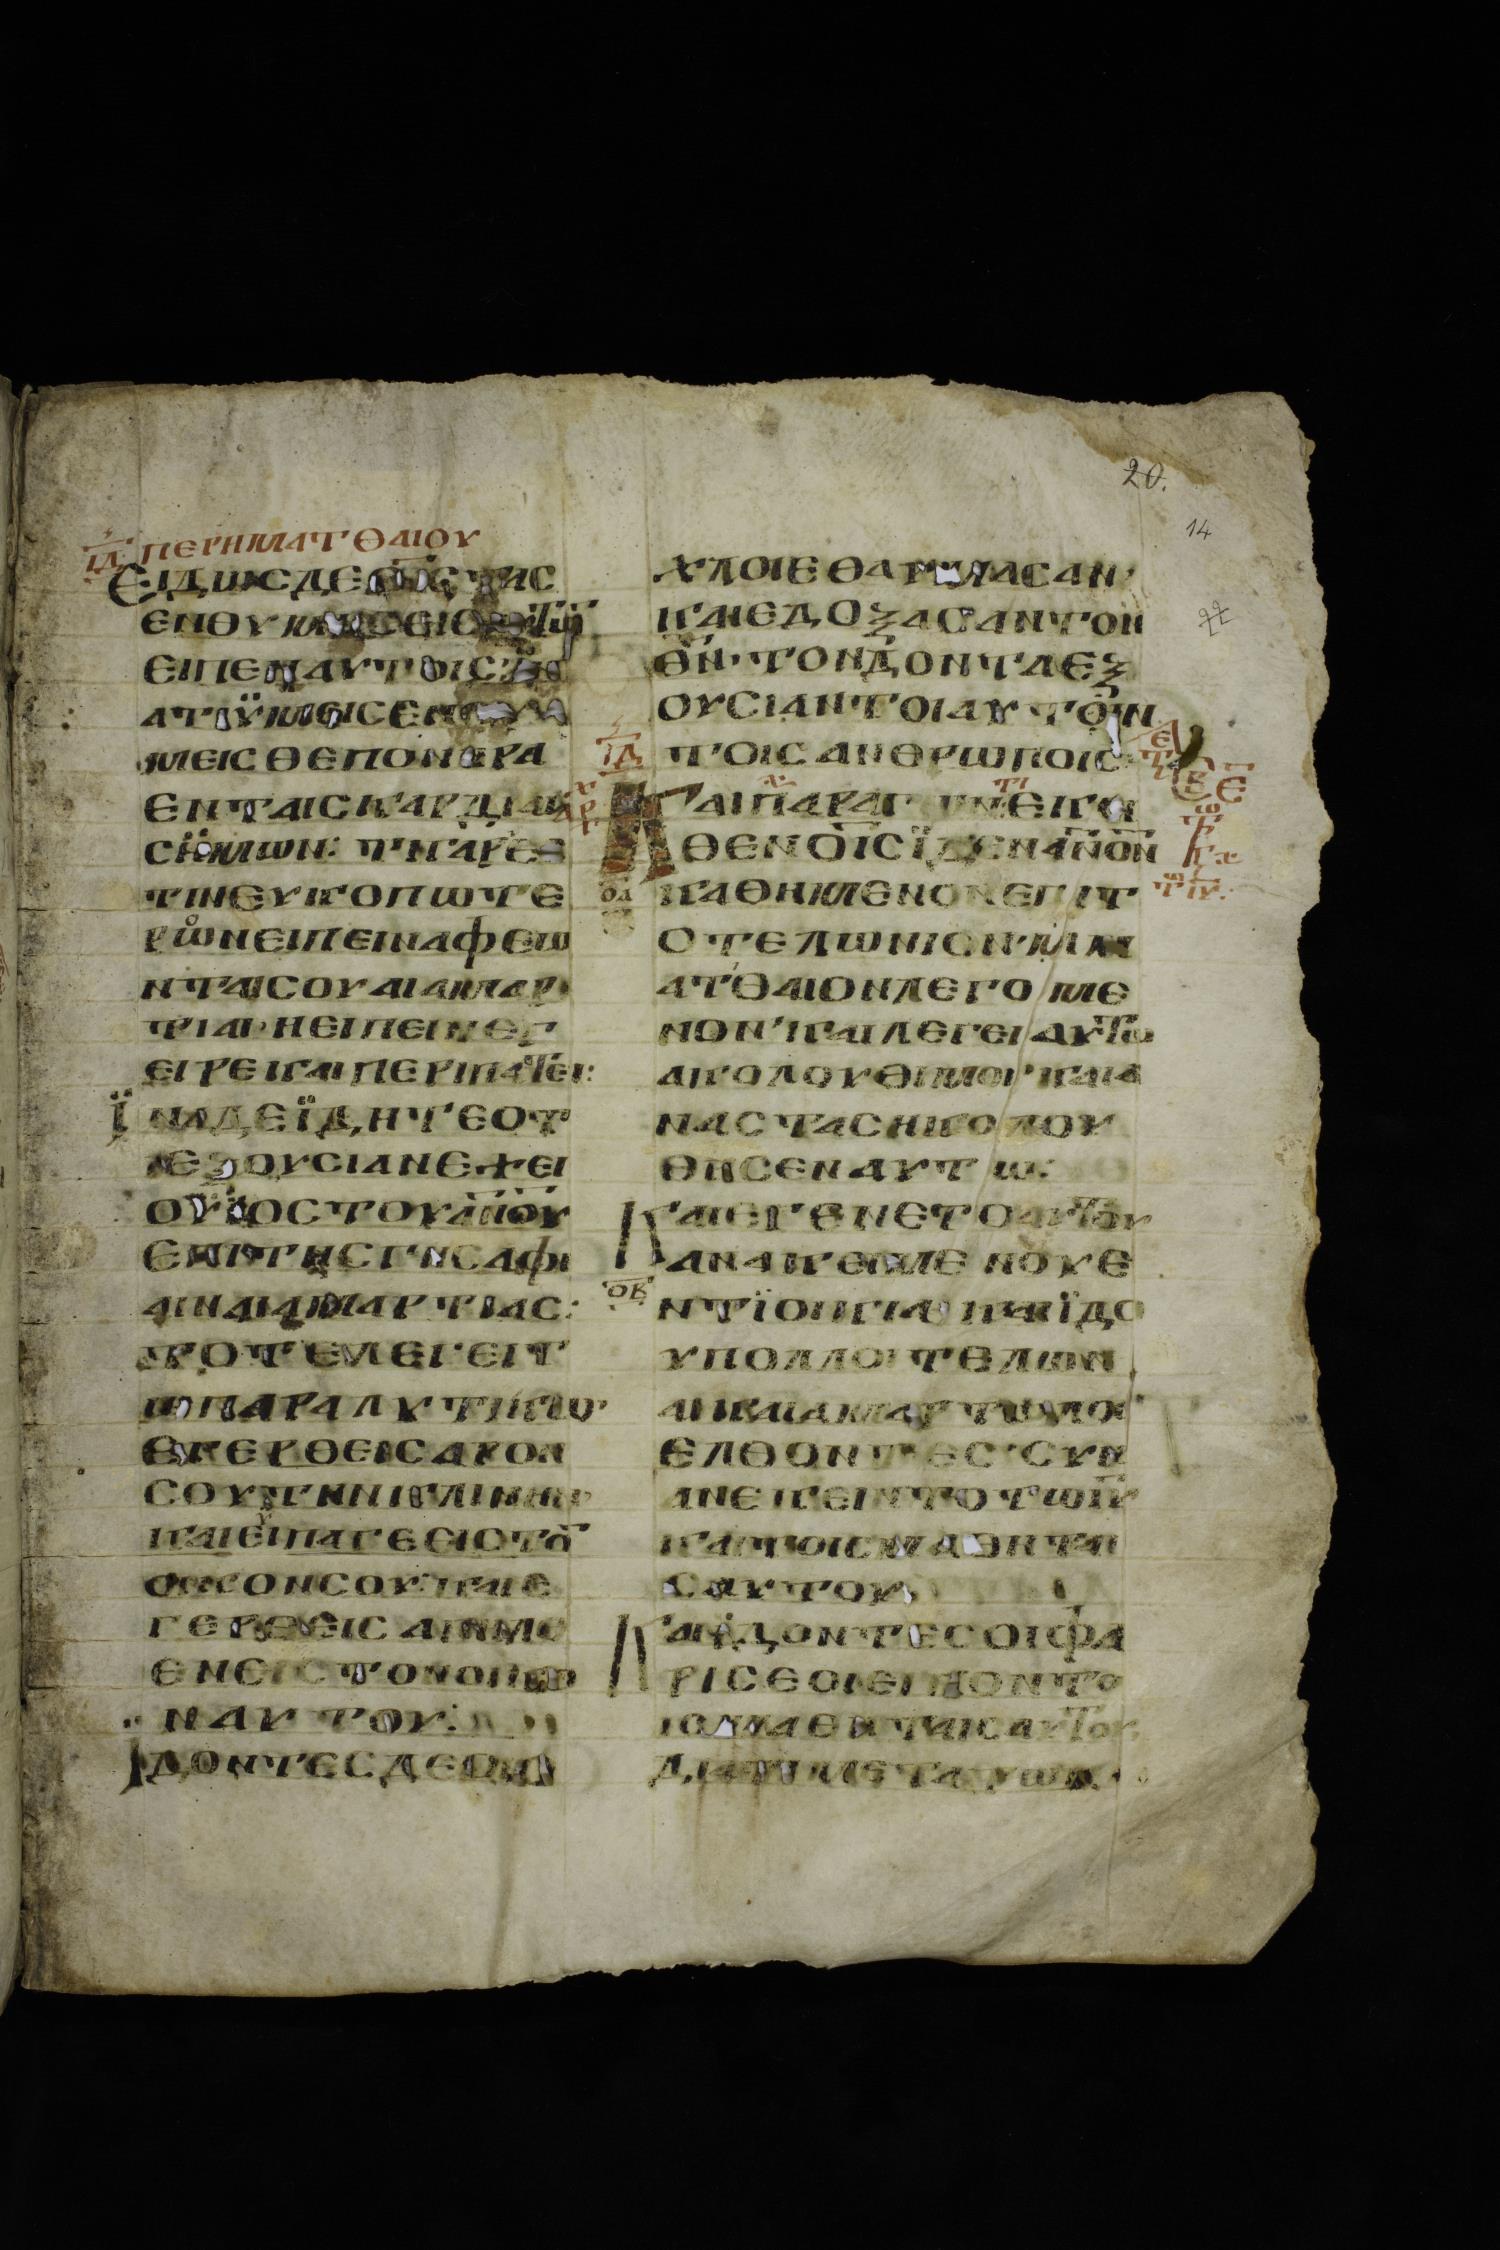 20.
14
ΙΔ ΠΕΡΗΜΑΤΘΑΙΟΥ
ΕΙΔΩΣ ΔΕ ΤΑΣ
ΕΝΘΥΜΗΣΕΙΣ
ΕΙΠΕΝΑΥΤΟΙΣ
ΑΤΙΫΜΕΙΣΕΝ
ΜΕΙΣΘΕΠΟΝΗΡΑ
ΕΝΤΑΙΣΚΑΡΔΙΑΙ
ΣΫΜΩΝ: ΤΗΓΑΡΕΣ
ΤΙΝΕΥΚΟΠΩΤΕ
ΡΩΝΕΙΠΕΙΝΑΦΕΩ
ΝΤΑΙΣΟΥΑΙΑΜΑΡ
ΤΙΑΙ·ΗΕΙΠΕΙΝΕΓ
ΕΙΡΕΚΑΙΠΕΡΙΠΑΤΕΙ:
ΪΝΑΔΕΪΔΗΤΕΟΤ
ΙΕΞΟΥΣΙΑΝΕΧΕΙ
ΟΥΪΟΣΤΟΥΑΝΟΥ
ΕΠΙΤΗΣΓΗΣΑΦΙ
ΑΙΝΑΙΑΜΑΡΤΙΑΣ:
ΤΟΤΕΛΕΓΕΙΤ
ΩΠΑΡΑΛΥΤΙΚΩ·
ΕΓΕΡΘΕΙΣΑΡΟΝ
ΣΟΥΤΗΝΚΛΙΝΗΝ
ΚΑΙΕΙΠΑΓΕΕΙΣΤΟ
ΟΙΚΟΝΣΟΥ:ΚΑΙΕ
ΓΕΡΘΕΙΣΑΠΗΛΘ
ΕΝΕΙΣΤΟΝΟΙΚΟ
ΝΑΥΤΟΥ:
ΙΔΟΝΤΕΣΔΕΟΙΟ
ΧΛΟΙΕΘΑΥΜΑΣΑΝ·
ΚΑΙΕΔΟΞΑΣΑΝΤΟΝ
ΘΝ·ΤΟΝΔΟΝΤΑΕΞ
ΟΥΣΙΑΝΤΟΙΑΥΤΗΝ
ΤΟΙΣΑΝΘΡΩΠΟΙΣ
ΙΔ
ΚΑΙΠΑΡΑΓΩΝΕΚΕΙ
ΘΕΝΟΙΣΪΔΕΝΑΝΟΝ
ΟΑ
ΚΑΘΗΜΕΝΟΝΕΠΙΤ
ΟΤΕΛΩΝΙΟΝ·Μ
ΑΤΘΑΙΟΝΛΕΓΟΜΕ
ΝΟΝ·ΚΑΙΛΕΓΕΙΑΥΤΩ
ΑΚΟΛΟΥΘΙΜΟΙ·ΚΑΙΑ
ΝΑΣΤΑΣΗΚΟΛΟΥ
ΘΗΣΕΝΑΥΤΩ:
ΚΑΙΕΓΕΝΕΤΟΑΥΤΟΥ
ΑΝΑΚΕΙΜΕΝΟΥΕ
ΟΒ
ΝΤΪΟΙΚΙΑ·ΚΑΙΪΔΟ
ΥΠΟΛΛΟΙΤΕΛΩΝ
ΑΙΚΑΙΑΜΑΡΤΩΛΟΙ
ΕΛΘΟΝΤΕΣ·ΣΥΝ
ΑΝΕΚΕΙΝΤΟΤΩΙΥ
ΚΑΙΤΟΙΣΜΑΘΗΤΑΙ
ΣΑΥΤΟΥ
ΚΑΙΪΔΟΝΤΕΣΟΙΦΑ
ΡΙΣΕΟΙΕΙΠΟΝΤΟ
ΙΣΜΑΘΗΤΑΙΣΑΥΤΟΥ
ΔΙΑΤΙΜΕΤΑΤΩΝ